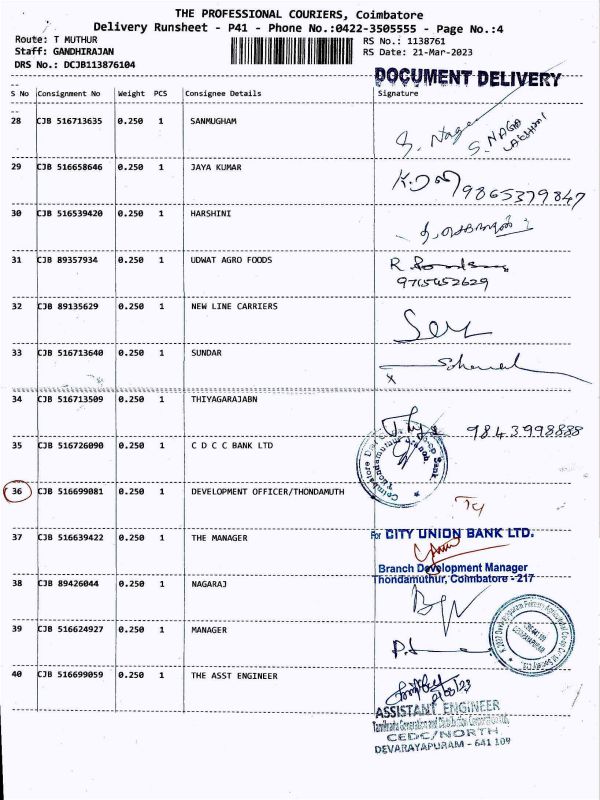 THE PROFESSIONAL COURIERS, Coimbatore
Delivery Runsheet - P41 - Phone No.:0422-3505555 - Page No.:4
Route: T MUTHUR
Staff: GANDHIRAJAN
DRS No.: DCJB113876104
RS No.: 1138761
RS Date: 21-Mar-2023
DOCUMENT DELIVERY
S No Consignment No Weight PCS Consignee Details Signature
28 CJB 516713635 0.250 1 SANMUGHAM S. Naga
S. NAGA
LAKSHMI
29 CJB 516658646 0.250 1 JAYA KUMAR 9865379847
30 CJB 516539420 0.250 1 HARSHINI
31 CJB 89357934 0.250 1 UDWAT AGRO FOODS
9715452629
32 CJB 89135629 0.250 1 NEW LINE CARRIERS
33 CJB 516713640 0.250 1 SUNDAR
x
34 CJB 516713509 0.250 1 THIYAGARAJABN 9843998888
35 CJB 516726090 0.250 1 C D C C BANK LTD
36 CJB 516699081 0.250 1 DEVELOPMENT OFFICER/THONDAMUTH
37 CJB 516639422 0.250 1 THE MANAGER
For CITY UNION BANK LTD.
Branch Development Manager
Thondamuthur, Coimbatore - 217
38 CJB 89426044 0.250 1 NAGARAJ
39 CJB 516624927 0.250 1 MANAGER
40 CJB 516699059 0.250 1 THE ASST ENGINEER
ASSISTANT ENGINEER
Tamilnadu Generation and Distribution Corporation Ltd,
CEDC/NORTH
DEVARAYAPURAM - 641 109